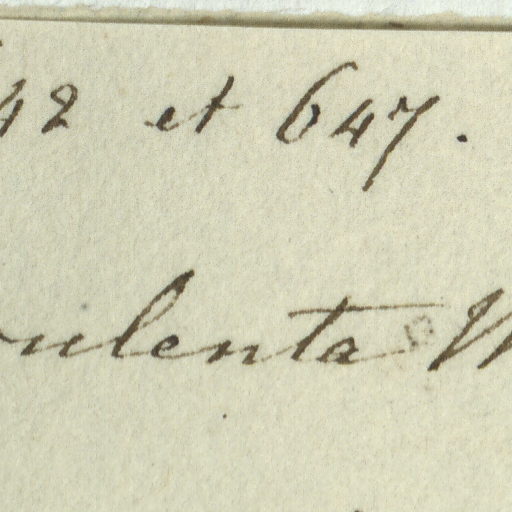 42 et 647.
ulenta